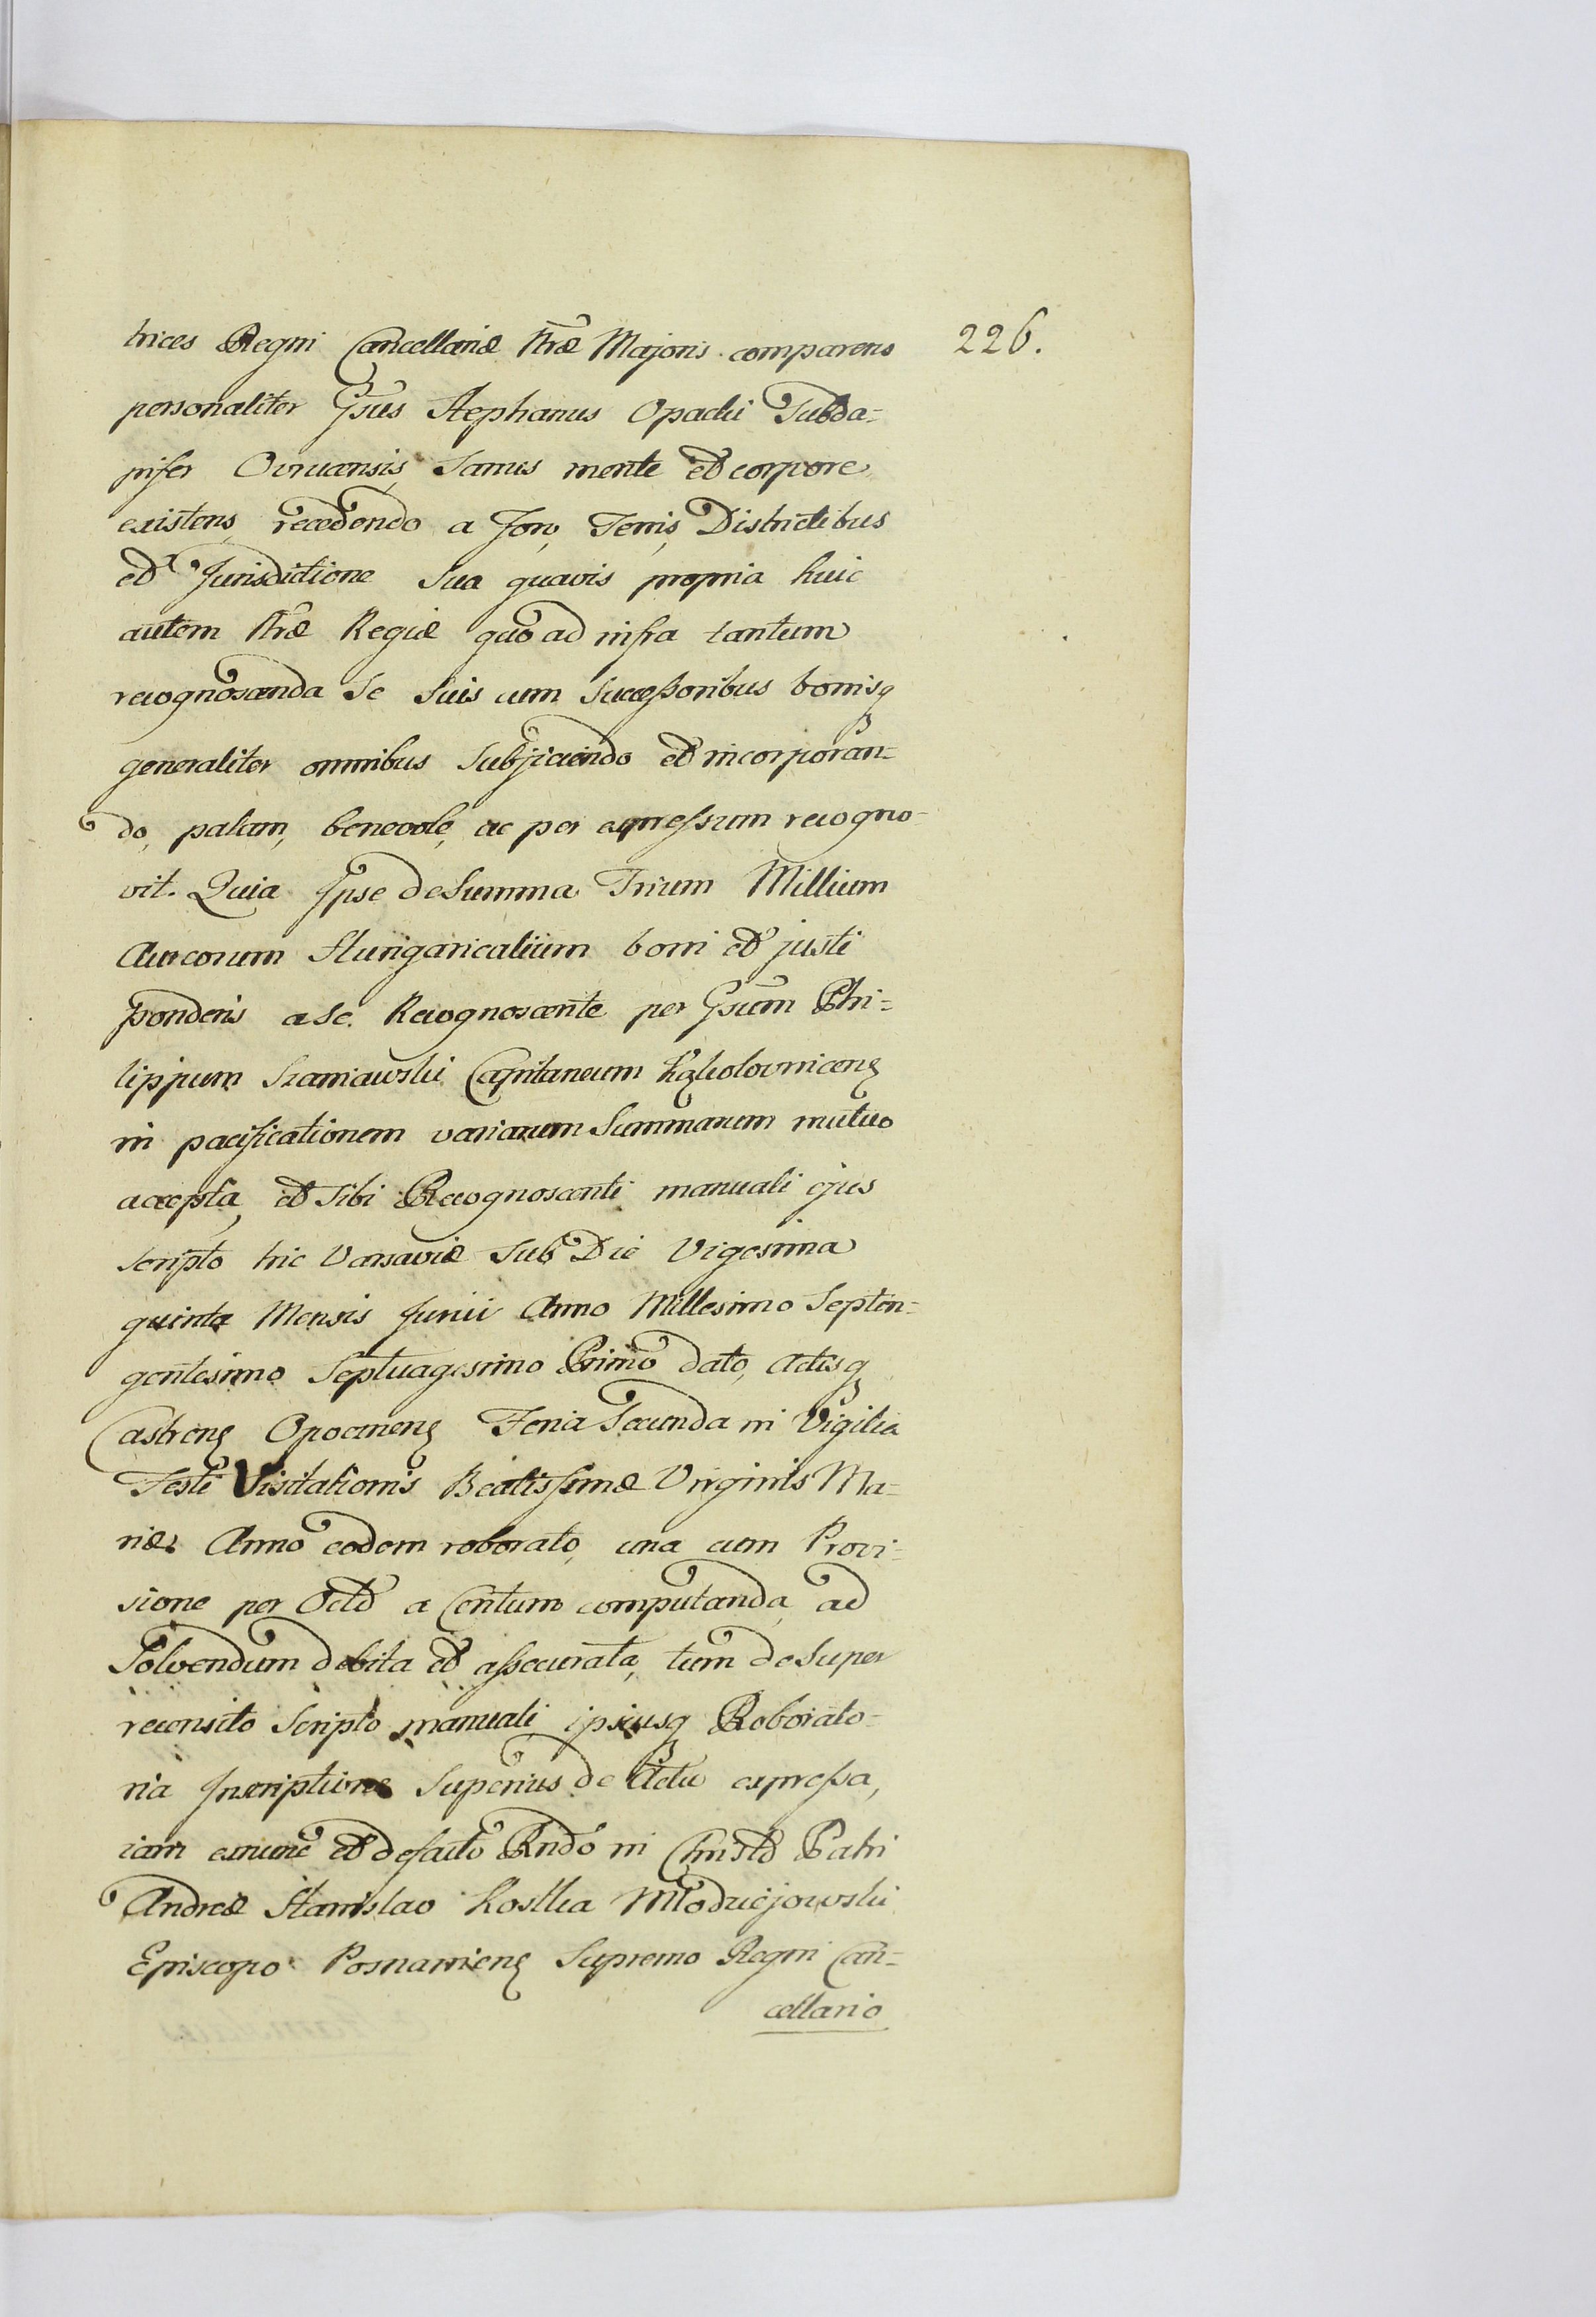 trices Regni Cancellariæ Nræ Majoris comparens 226.
personaliter Gsus Stephanus Opacki Subda=
pifer Ovrucensis, Sanus mente et corpore
existens, recedendo a Foro, Terris, Districtibus
et Jurisdictione Sua quavis propria huic
autem Nræ Regiæ quo ad infra tantum
recognoscenda Se Suis cum Successoribus bonisq
generaliter omnibus Subjiciendo et incorporan=
do, palam, benevole, ac per expressum recogno=
vit. Quia Ipse de Summa Trium Millium
Aureorum Hungaricalium boni et justi
ponderis a Se Recognoscente per Gsum Phi=
lippum Szaniawski Capitaneum Kąkolovnicens
in pacificationem variarum Summarum mutuo
accepta, et Sibi Recognoscenti manuali ejus
Scripto hic Varsaviæ Sub Die Vigesima
quinta Mensis Junii Anno Millesimo Septin=
gentesimo Septuagesimo Primo dato, Actisq
Castrens Opocznens Feria Secunda in Vigilia
Festi Visitationis Beatissimæ Virginis Ma=
riæ Anno eodem roborato, una cum Provi=
sione per Octo a Centum computanda, ad
Solvendum debita et assecurata, tum de Super
recensito Scripto manuali ipsiusq Roborato=
ria Inscriptione Superius de Actu expressa,
iam exnunc et defacto Rndo in Christo Patri
Andreæ Stanislao Kostka Młodziejowski
Episcopo Posnaniens Supremo Regni Can=
cellario